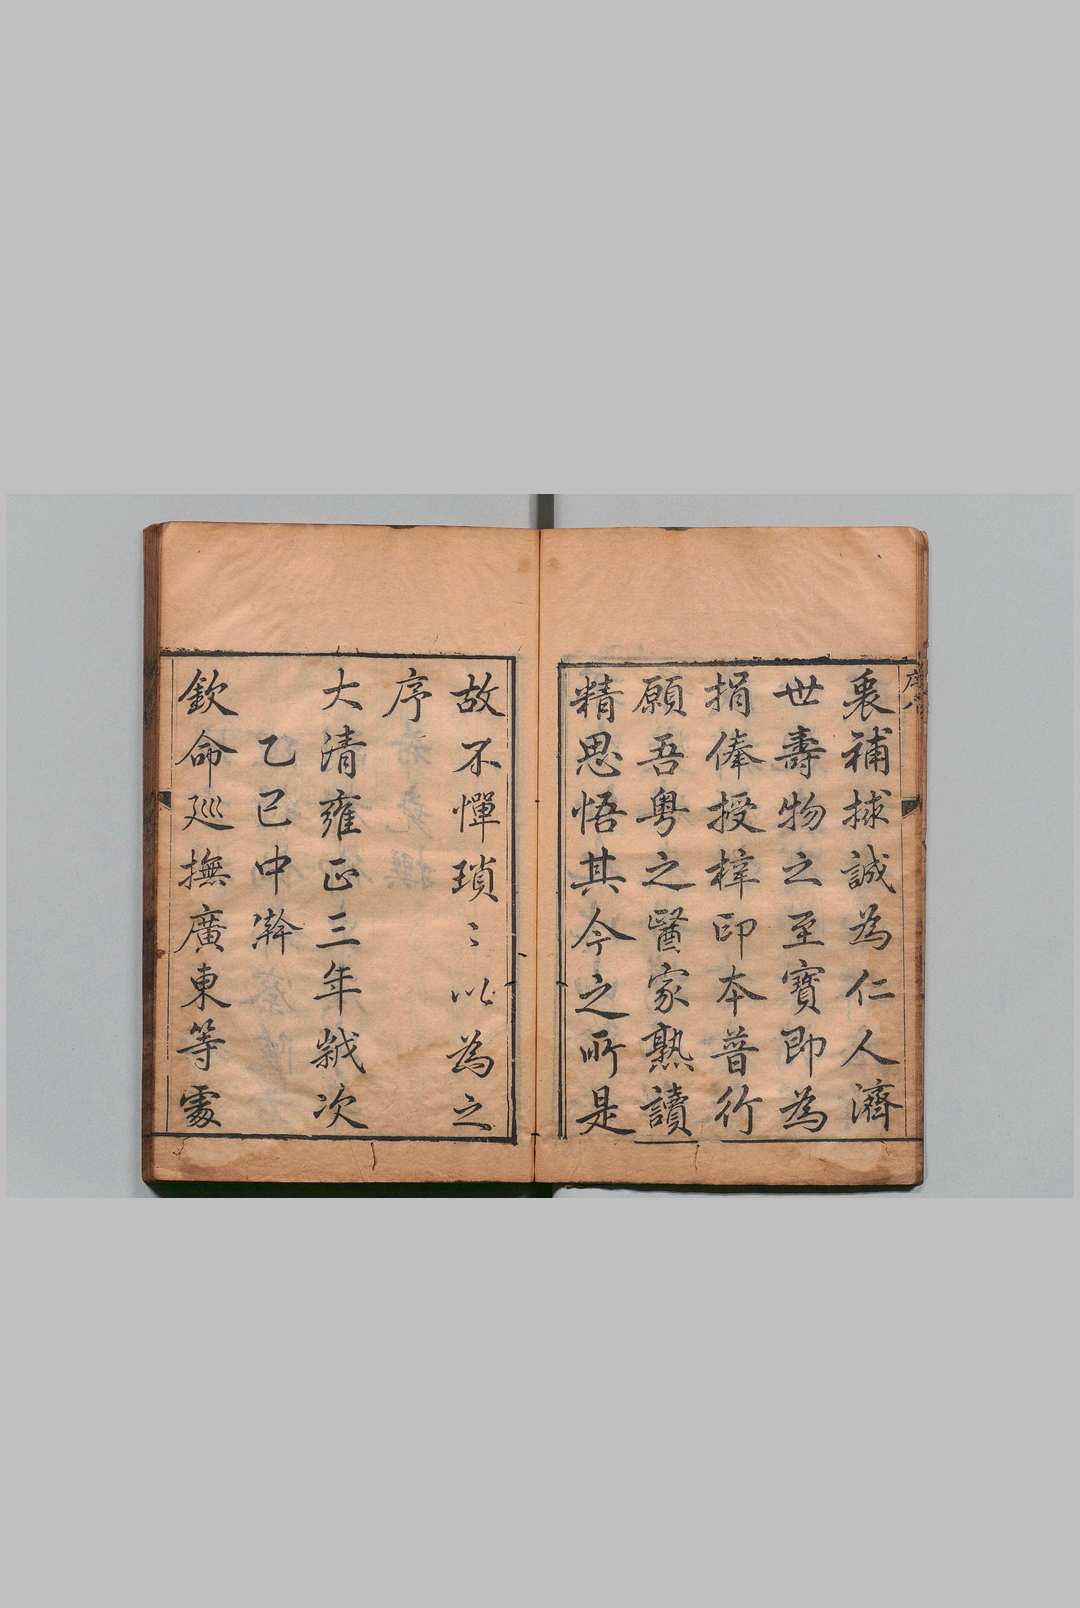 裒補捄誠為仁人濟
世壽物之至寶即為
捐俸授梓印本普行
願吾粵之醫家熟讀
精思悟其今之所是
故不憚瑣〻以為之
序
大清雍正三年歲次
乙巳中澣
欽命巡撫廣東等處